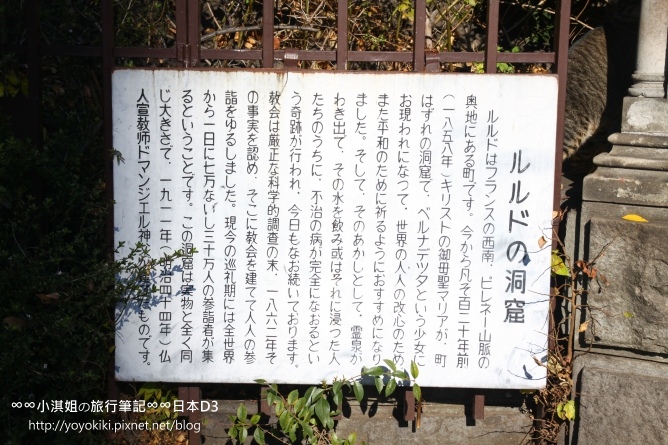 ルルドの洞窟
ルルドはフランスの西南、ピレネー山脈の
奥地にある町です。今から凡そ百二十年前
（一八五八年）キリストの御母聖マリアが、町
はずれの洞窟で、ベルナデッタという少女に
お現われになって、世界の人人の改心のため
また平和のために祈るようにおすすめになり
ました。そして、そのあかしとして、霊泉が
わき出て、その水を飲み或はそれに浸った人
たちのうちに、不治の病が完全になおるとい
う奇跡が行われ、今日もなお続いております。
教会は厳正な科学的調査の末、一八六二年そ
の事実を認め、そこに教会を建てて人人の参
詣をゆるしました。現今の巡礼期には全世界
から一日に七万ないし三十万人の参詣者が集
るということです。この洞窟は実物と全く同
じ大きさで、一九一一年（明治四十四年）仏
人宣教師ドマンジエル神 ものです。
∞∞小淇姐の旅行筆記∞∞日本D3
http://yoyokiki.pixnet.net/blog